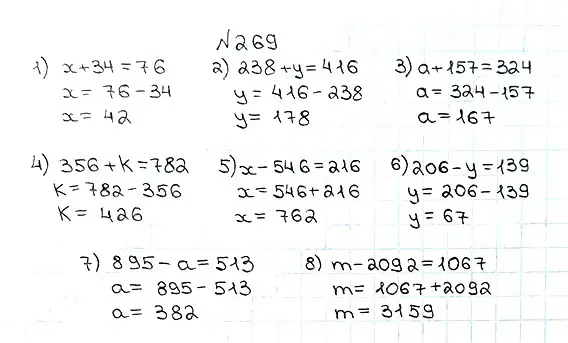 №269
1) x+34=76 2) 238+y=416 3) a+157=324
x= 76-34 y= 416-238 a= 324-157
x= 42 y= 178 a= 167
4) 356+k=782 5) x-546=216 6) 206-y=139
k=782-356 x= 546+216 y= 206-139
k= 426 x= 762 y= 67
7) 895-a=513 8) m-2092=1067
a= 895-513 m= 1067+2092
a= 382 m= 3159